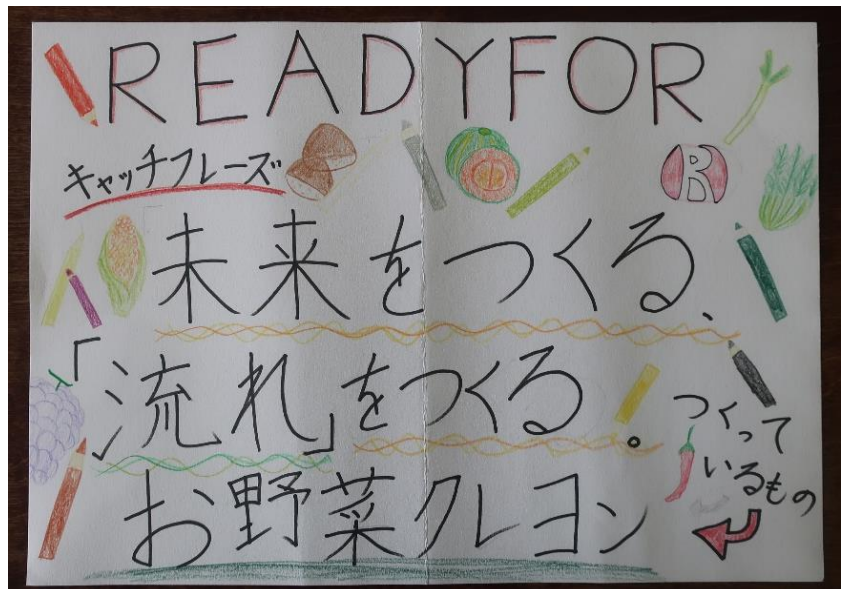 READYFOR
キャッチフレーズ
R
未来をつくる、
「流れ」をつくる。
つくって
いるもの
お野菜クレヨン